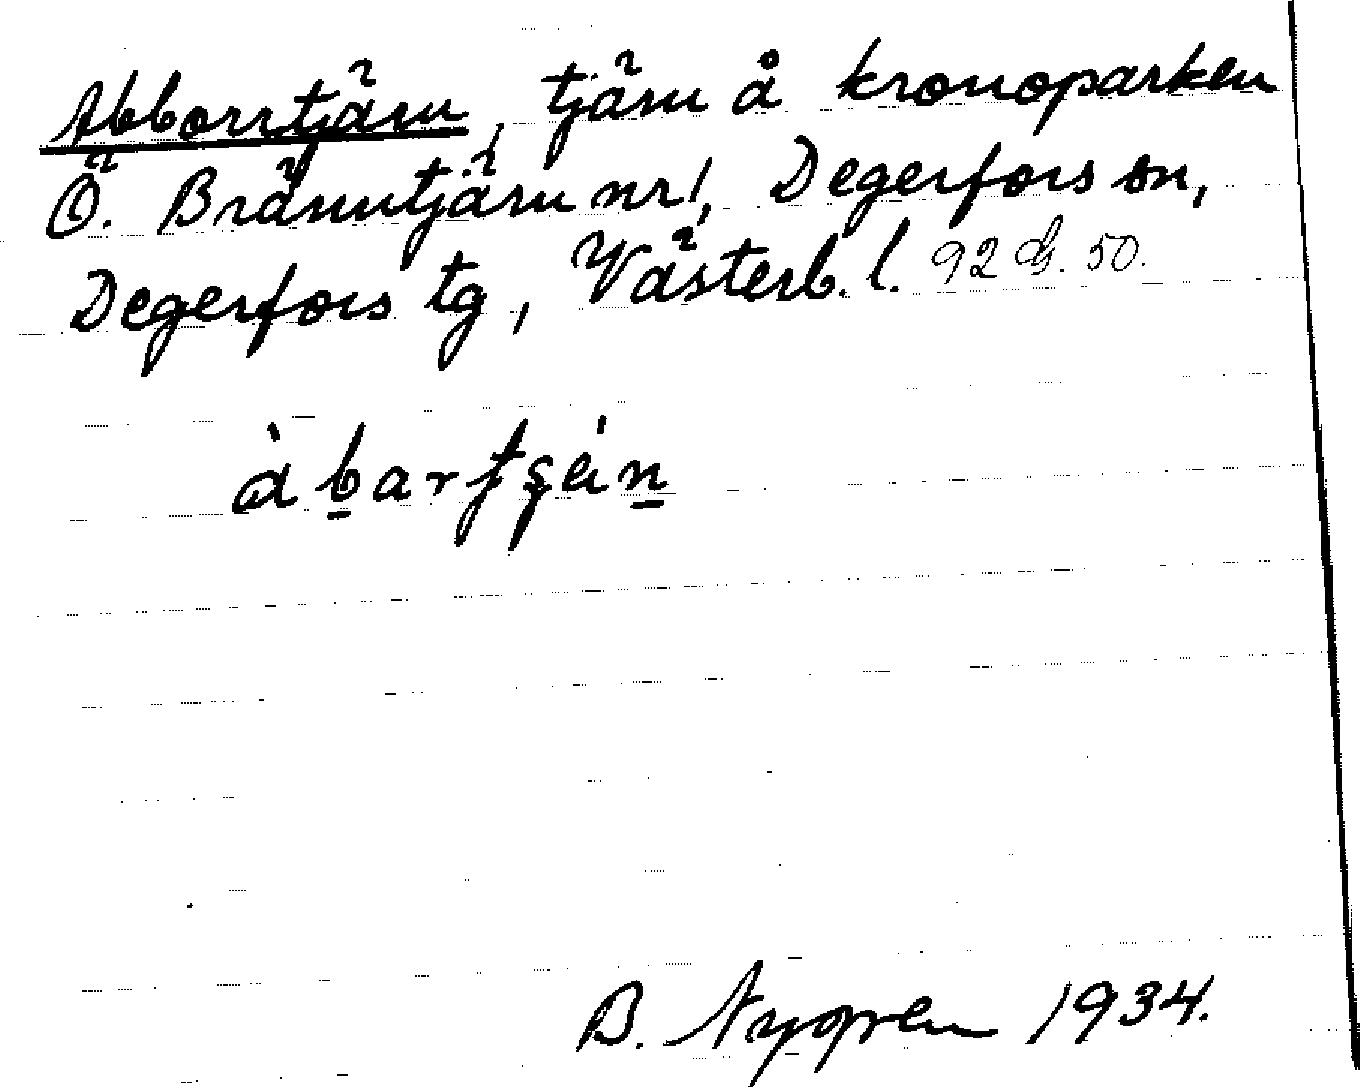 Abborrtjärn, tjärn å kronoparken
Ö. Bränntjärn nr 1, Degerfors sn,
Degerfors tg, Västerb. l. 92 G. 50.
àbartʂɛ́n
B. Nygren 1934.